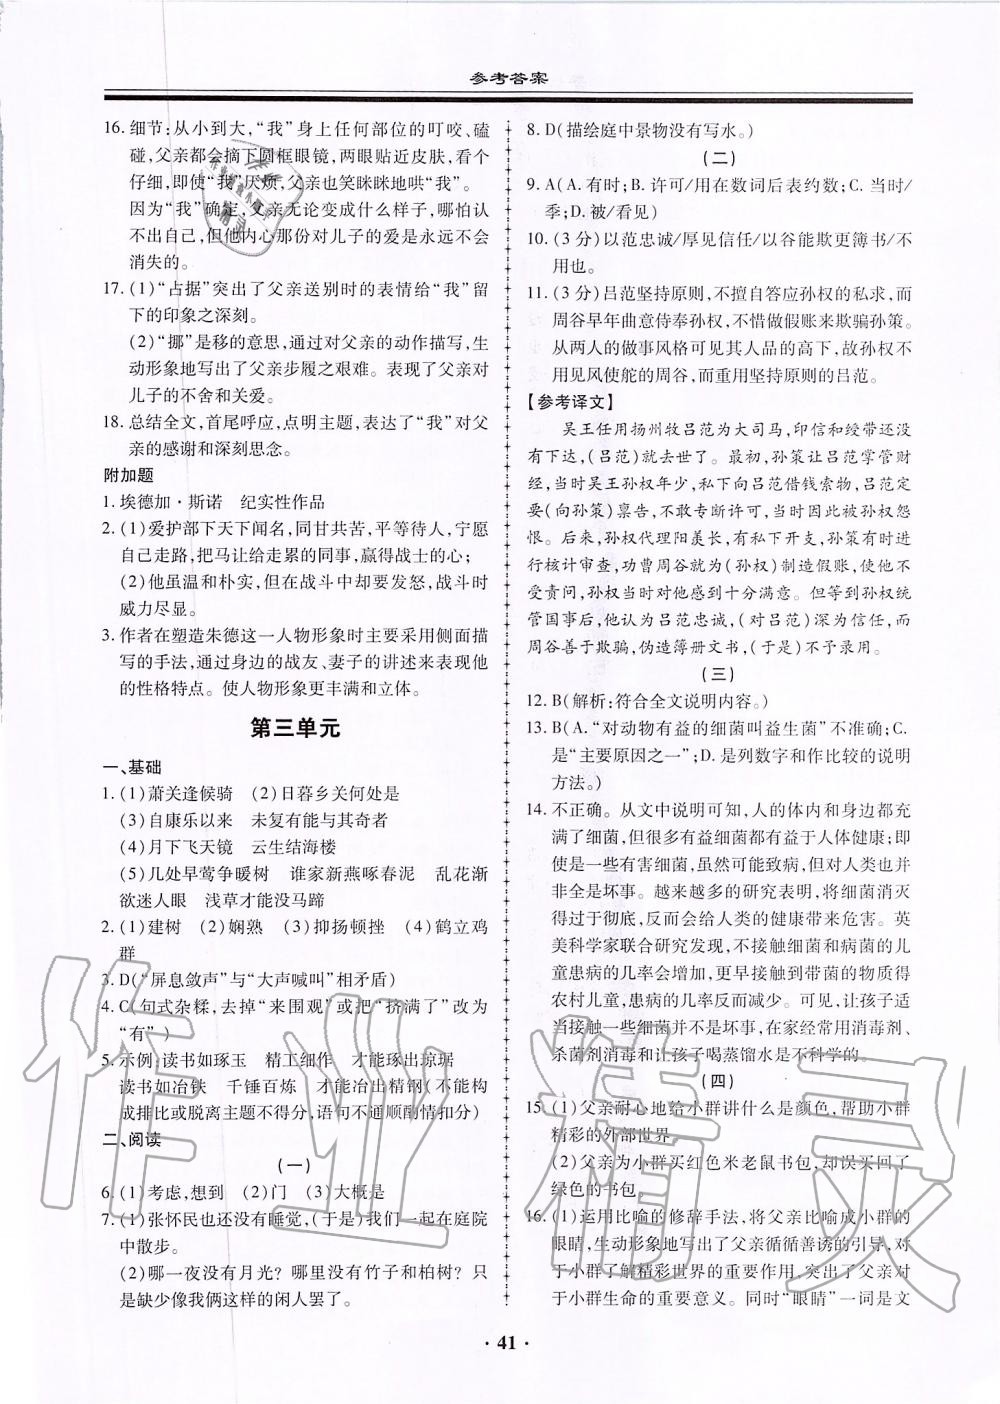 参考答案
16. 细节:从小到大,“我”身上任何部位的叮咬、磕
碰,父亲都会摘下圆框眼镜,两眼贴近皮肤,看个
仔细,即使“我”厌烦,父亲也笑眯眯地哄“我”。
因为“我”确定,父亲无论变成什么样子,哪怕认
不出自己,但他内心那份对儿子的爱是永远不会
消失的。
17. (1)“占据”突出了父亲送别时的表情给“我”留
下的印象之深刻。
(2)“挪”是移的意思,通过对父亲的动作描写,生
动形象地写出了父亲步履之艰难。表现了父亲对
儿子的不舍和关爱。
18. 总结全文,首尾呼应,点明主题,表达了“我”对父
亲的感谢和深刻思念。
附加题
1. 埃德加·斯诺 纪实性作品
2. (1)爱护部下天下闻名,同甘共苦,平等待人,宁愿
自己走路,把马让给走累的同事,赢得战士的心;
(2)他虽温和朴实,但在战斗中却要发怒,战斗时
威力尽显。
3. 作者在塑造朱德这一人物形象时主要采用侧面描
写的手法,通过身边的战友、妻子的讲述来表现他
的性格特点。使人物形象更丰满和立体。
第三单元
一、基础
1. (1)萧关逢候骑 (2)日暮乡关何处是
(3)自康乐以来 未复有能与其奇者
(4)月下飞天镜 云生结海楼
(5)几处早莺争暖树 谁家新燕啄春泥 乱花渐
欲迷人眼 浅草才能没马蹄
2. (1)建树 (2)娴熟 (3)抑扬顿挫 (4)鹤立鸡
群
3. D(“屏息敛声”与“大声喊叫”相矛盾)
4. C(句式杂糅,去掉“来围观”或把“挤满了”改为
“有”)
5. 示例:读书如琢玉 精工细作 才能琢出琼琚
读书如冶铁 千锤百炼 才能冶出精钢(不能构
成排比或脱离主题不得分,语句不通顺酌情扣分)
二、阅读
(一)
6. (1)考虑,想到 (2)门 (3)大概是
7. (1)张怀民也还没有睡觉,(于是)我们一起在庭院
中散步。
(2)哪一夜没有月光?哪里没有竹子和柏树?只
是缺少像我俩这样的闲人罢了。
8. D(描绘庭中景物没有写水。)
(二)
9. A(A. 有时;B. 许可/用在数词后表约数;C. 当时/
季;D. 被/看见)
10. (3 分)以范忠诚/厚见信任/以谷能欺更簿书/不
用也。
11. (3 分)吕范坚持原则,不擅自答应孙权的私求,而
周谷早年曲意侍奉孙权,不惜做假账来欺骗孙策。
从两人的做事风格可见其人品的高下,故孙权不
用见风使舵的周谷,而重用坚持原则的吕范。
【参考译文】
吴王任用扬州牧吕范为大司马,印信和绶带还没
有下达,(吕范)就去世了。最初,孙策让吕范掌管财
经,当时吴王孙权年少,私下向吕范借钱索物,吕范定
要(向孙策)禀告,不敢专断许可,当时因此被孙权怨
恨。后来,孙权代理阳羡长,有私下开支,孙策有时进
行核计审查,功曹周谷就为(孙权)制造假账,使他不
受责问,孙权当时对他感到十分满意。但等到孙权统
管国事后,他认为吕范忠诚,(对吕范)深为信任,而
周谷善于欺骗,伪造簿册文书,(于是)不予录用。
(三)
12. B(解析:符合全文说明内容。)
13. B(A.“对动物有益的细菌叫益生菌”不准确;C.
是“主要原因之一”;D. 是列数字和作比较的说明
方法。)
14. 不正确。从文中说明可知,人的体内和身边都充
满了细菌,但很多有益细菌都有益于人体健康;即
使是一些有害细菌,虽然可能致病,但对人类也并
非全是坏事。越来越多的研究表明,将细菌消灭
得过于彻底,反而会给人类的健康带来危害。英
美科学家联合研究发现,不接触细菌和病菌的儿
童患病的几率会增加,更早接触到带菌的物质得
农村儿童,患病的几率反而减少。可见,让孩子适
当接触一些细菌并不是坏事,在家经常用消毒剂、
杀菌剂消毒和让孩子喝蒸馏水是不科学的。
(四)
15. (1)父亲耐心地给小群讲什么是颜色,帮助小群
精彩的外部世界
(2)父亲为小群买红色米老鼠书包,却误买回了
绿色的书包。
16. (1)运用比喻的修辞手法,将父亲比喻成小群的
眼睛,生动形象地写出了父亲循循善诱的引导,对
于小群了解精彩世界的重要作用,突出了父亲对
于小群生命的重要意义。同时“眼睛”一词是文
· 41 ·
作业精灵